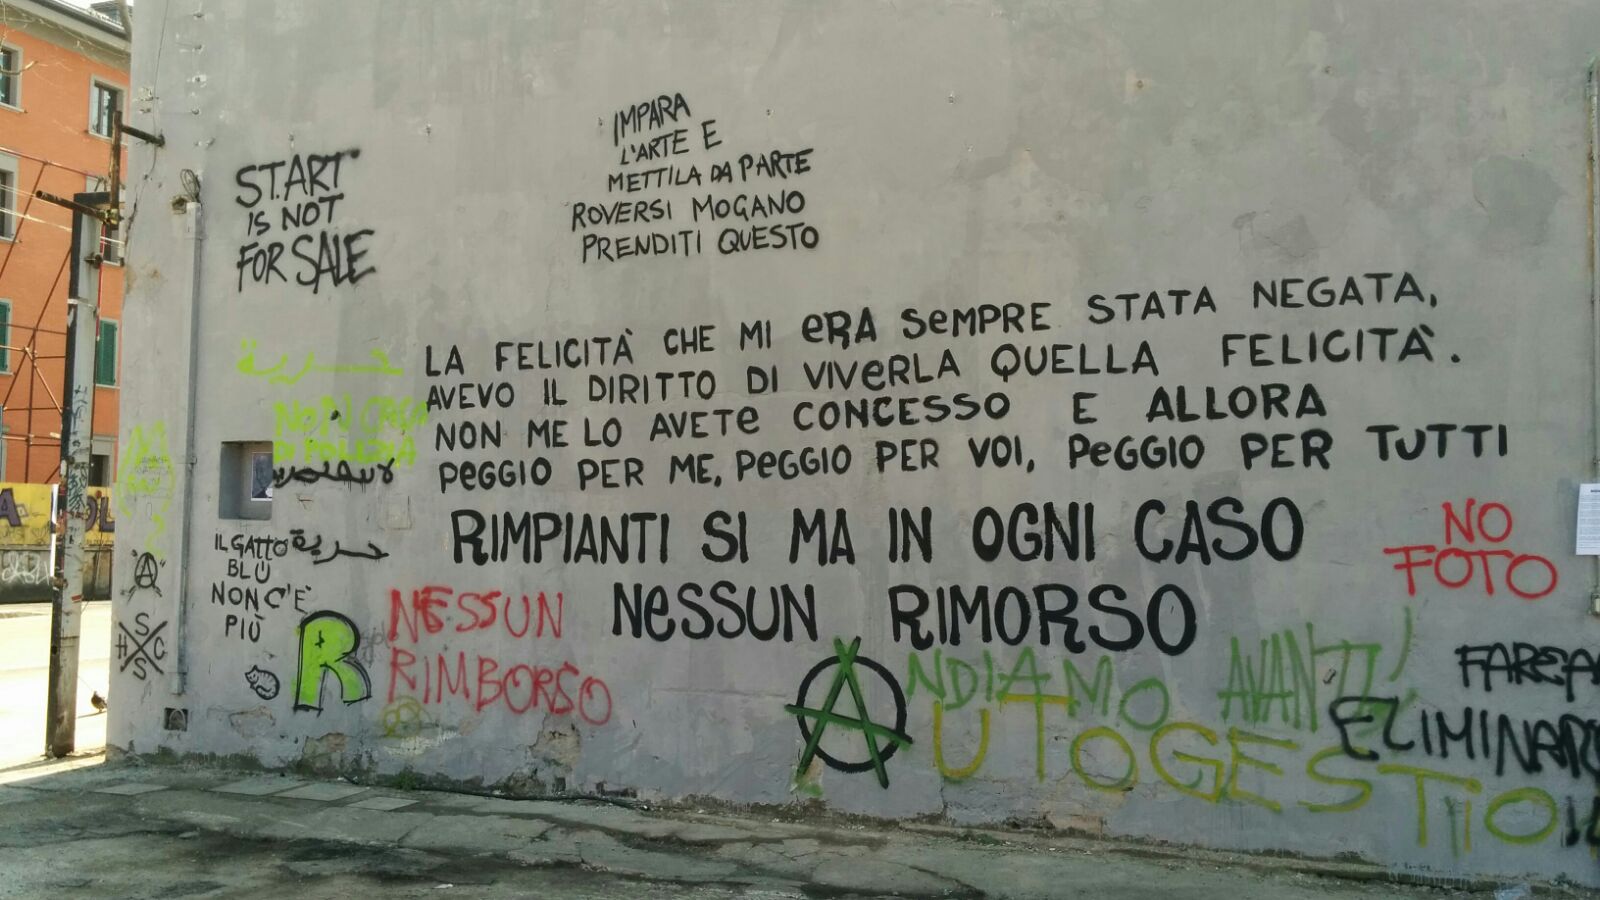 ST.ART
IS NOT
FOR SALE
IMPARA
L'ARTE E
METTILA DA PARTE
ROVERSI MOGANO
PRENDITI QUESTO
LA FELICITÀ CHE MI eRA SeMPRE STATA NEGATA,
AVEVO IL DIRITTO DI VIVeRLA QUELLA FELICITÀ.
NON ME LO AVETe CONCESSO E ALLORA
PeGGIO PER ME, PeGGIO PER VOI, PeGGIO PER TUTTI
RIMPIANTI SI MA IN OGNI CASO
NeSSUN RIMORSO
حرية
NON C'È
DI POLIZIA
حرية
IL GATTO
BLU
NON C'E'
PIÙ
"A"
S
H C
S
R
NESSUN
RIMBORSO
NO
FOTO
ANDIAMO AVANTI
AUTOGESTIO
FAREA
ELIMINAR